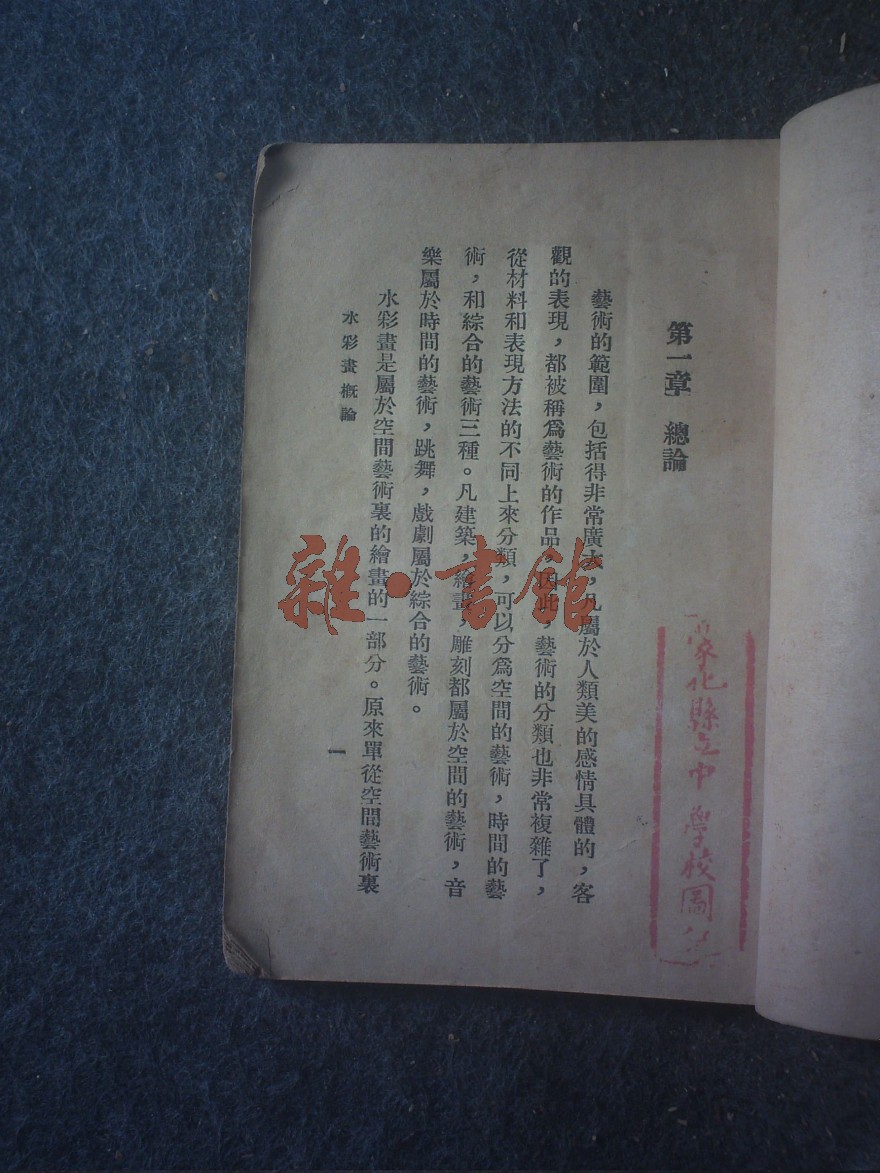 第一章　總論
藝術的範圍，包括得非常廣大，凡屬於人類美的感情具體的，客
觀的表現，都被稱爲藝術的作品，因此，藝術的分類也非常複雜了，
從材料和表現方法的不同上來分類，可以分爲空間的藝術，時間的藝
術，和綜合的藝術三種。凡建築，繪畫，雕刻都屬於空間的藝術，音
樂屬於時間的藝術，跳舞，戲劇屬於綜合的藝術。
水彩畫是屬於空間藝術裏的繪畫的一部分。原來單從空間藝術裏
水彩畫概論
一
化縣立中學校圖
雜·書館